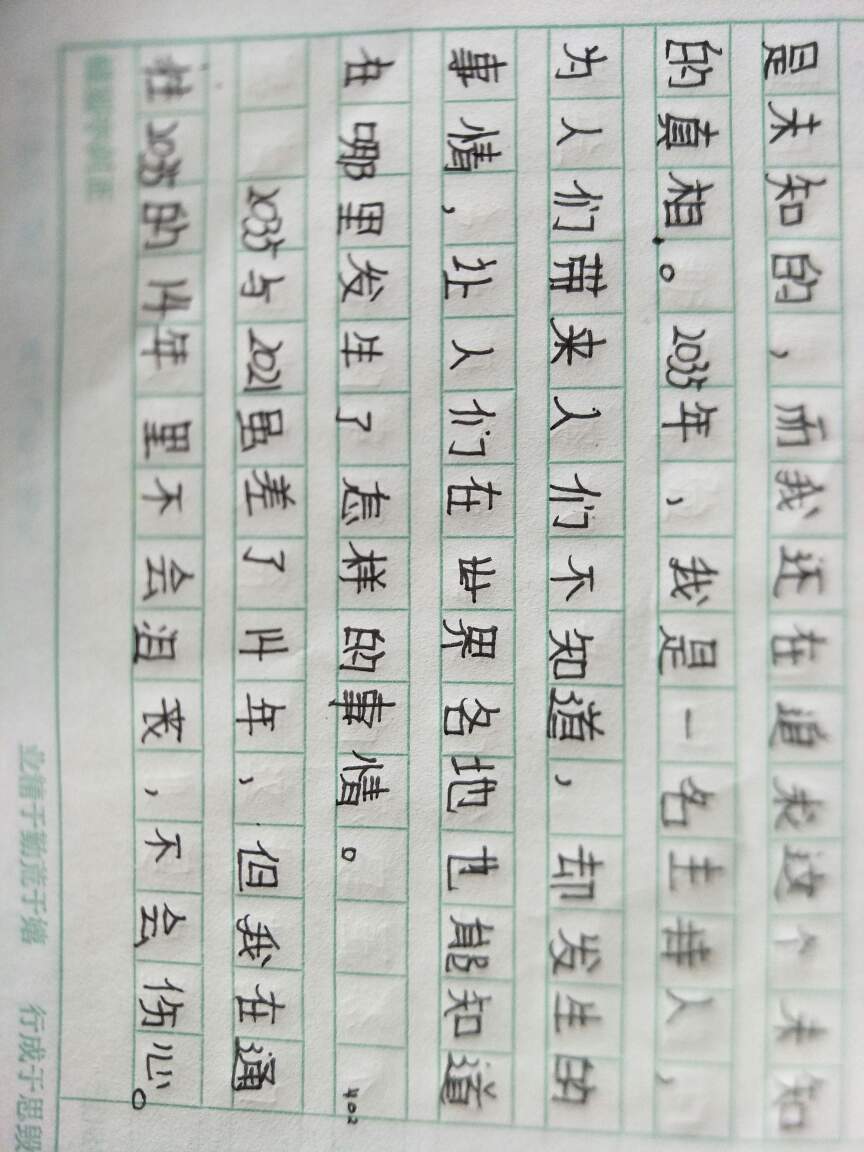 是未知的，而我还在追求这个未知
的真相。2035年，我是一名主持人，
为人们带来人们不知道，却发生的
事情，让人们在世界各地也能知道
在哪里发生了怎样的事情。
402
2035与2021虽差了14年，但我在通
往2035的14年里不会沮丧，不会伤心。
业精于勤荒于嬉 行成于思毁